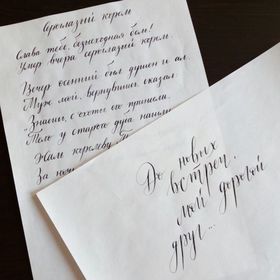 Сероглазый король
Слава тебе, безысходная боль!
Умер вчера сероглазый король.
Вечер осенний был душен и ал,
Муж мой, вернувшись, сказал
"Знаешь, с охоты его принесли,
Тело у старого дуба нашли
Жаль королеву. Т
За ночь
До новых
встреч,
мой дорогой
друг...